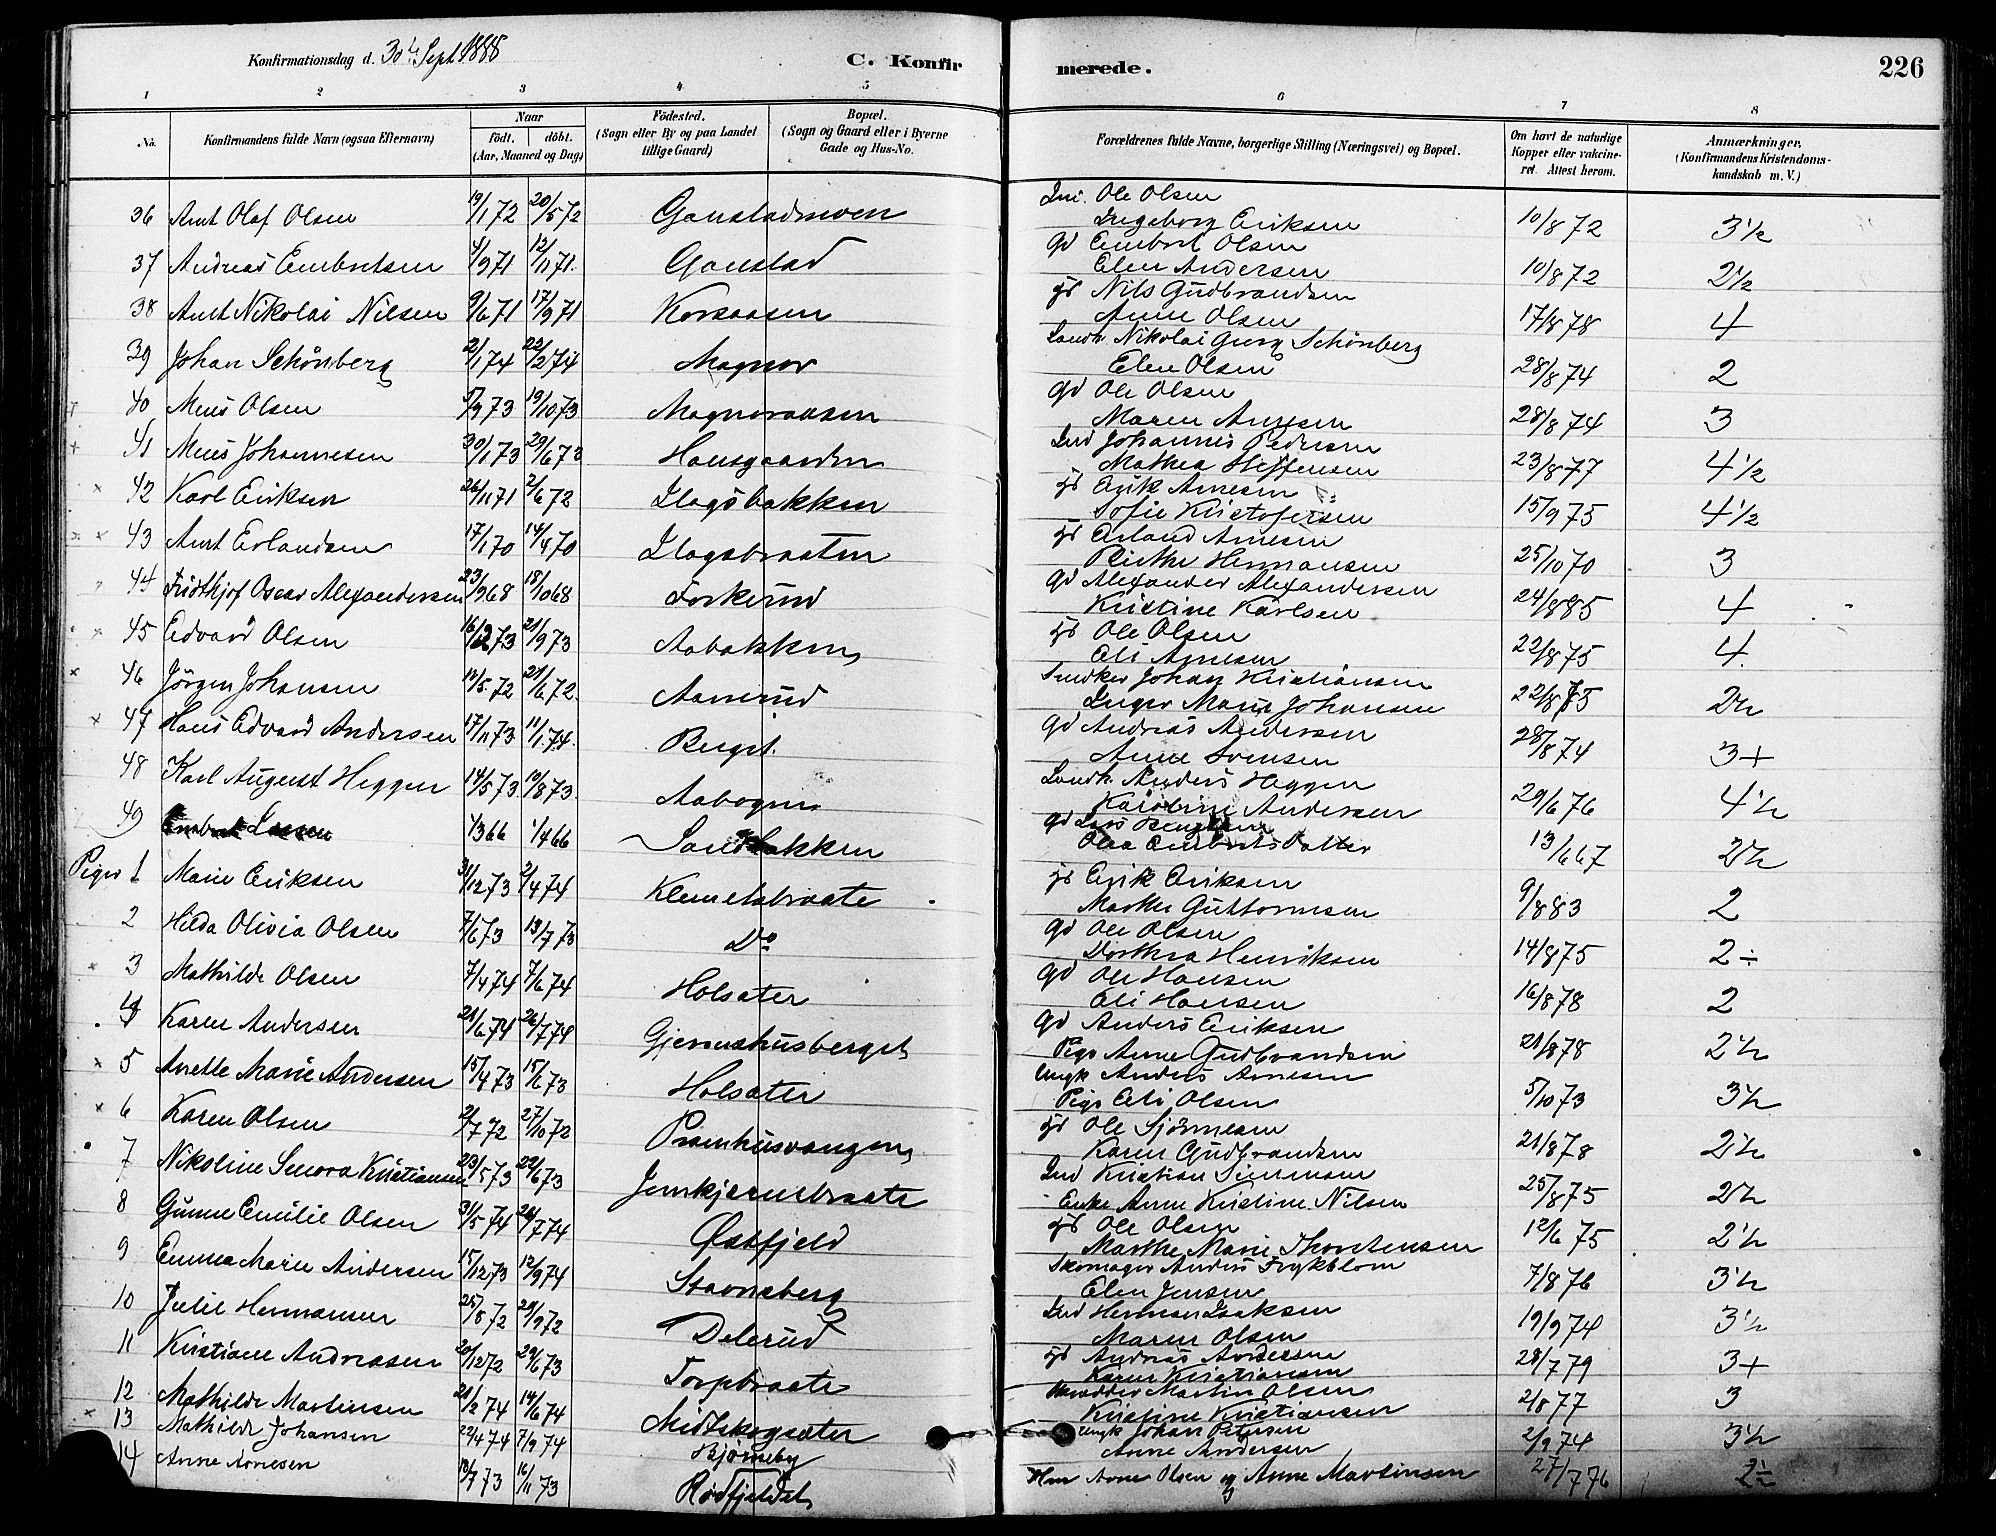 Konfirmationsdag d. 30te Sept 1888
C. Konfirmerede.
226
1 2 3 4 5 6 7 8
No.
Konfirmandens fulde Navn (ogsaa Efternavn)
Naar
födt. döbt.
(Aar, Maaned og Dag)
Födested.
(Sogn eller By og paa Landet tillige Gaard)
Bopæl.
(Sogn og Gaard eller i Byerne Gade og Hus-No.
Forældrenes fulde Navne, borgerlige Stilling (Næringsvei) og Bopæl.
Om havt de naturlige Kopper eller vakcineret. Attest herom.
Anmærkninger.
(Konfirmandens Kristendomskundskab m. V.)
36 Amt Olaf Olsen 19/1 72 20/5 72 Gaustadmoen Ole Olsen
Ingeborg Eriksen 10/8 72 3½
37 Andreas Embretsen 4/9 71 12/11 71. Gaustad Gd Embret Olsen
Elen Andersen 10/8 72 2½
38 Amt Nikolai Nilsen 9/6 71 17/9 71 Korsaasen Nils Gudbrandsen
Anne Olsen 17/8 78 4
39 Johan Schönberg 2/1 74 22/2 74 Magnor Landh. Nikolai Georg Schönberg
Elen Olsen 28/8 74 2
40 Meus Olsen 5/9 73 19/10 73 Magnoraasen Gd Ole Olsen
Maren 28/8 74 3
41 Meus Johannesen 30/1 73 29/6 73 Hansgaarden Ind Johannes Pedersen
Mathea Steffensen 23/8 77 4½
42 Karl Eriksen 26/11 71 2/6 72 Slagsbakken Erik Arnesen
Sofie Kristofersen 15/9 75 4½
43 Amt Erlandsen 17/1 70 14/4 70 Slagsbraaten Erland Arnesen
Hermansen 25/10 70 3
44 Fridthjof Oscar Alexandersen 23/9 68 18/10 68 Forkerud Gd Alexander Alexandersen
Kristine Karlsen 24/8 85 4
45 Edvard Olsen 73 21/9 73 Aabakken Ole Olsen
Eli Arnesen 22/8 75 4.
46 Jörgen Johansen 12/5 72 21/6 72. Aamerud Snedker Johan Kristiansen
Inger Marie Johansen 22/8 75 2½
47 Hans Edvard Andersen 17/11 73 11/1 74. Berget. Gd Andreas Andersen
Anne Svensen 28/8 74 3+
48 Karl August Heggen 14/5 73 10/8 73. Aabogen Landh. Anders Heggen
Karoline Andersen 29/6 76 4½
49 Embret Larsen 66 66 Sandbakken Gd Lars
Olea Embrets Datter 13/6 67 2½
Piger 1 Marie Eriksen 31/12 73 2/4 74 Klemetsbraate Erik Eriksen
Marthe Guttormsen 9/8 83 2
2 Hilda Olivia Olsen 7/6 73 13/7 73 Do Gd Ole Olsen
Dorthea Henriksen 14/8 75 2÷
3 Mathilde Olsen 7/4 74 7/6 74 Holsæter Gd Ole Hansen
Eli Hansen 16/8 78 2
4 Karen Andersen 21/6 74 26/7 74 Gjernushusberget Gd Anders Eriksen
Pige Anne Gudbrandsen 21/8 78 2½
5 Anette Marie Andersen 15/4 73 15/6 73 Holsæter Ungk Anders Arnesen
Pige Eli Olsen 5/10 73 3½
6 Karen Olsen 2/7 72 27/10 72 Pramhusvangen Ole Sjörnesen
Karen Gudbrandsen 21/8 78 2½
7 Nikoline Senora Kristiansen 23/5 73 22/6 73 Jernkjernsbraate Ind Kristian Simensen
Enke Anne Kristine Nilsen 25/8 75 2½
8 Gunne Emilie Olsen 31/5 74 26/7 74 Østfjeld Ole Olsen
Marthe Marie Thorstensen 12/6 75 2½
9 Emma Marie Andersen 15/12 73 12/9 74 Stavnsberg Skomager Anders Frykblom
Elen Jensen 7/8 76 3½
10 Julie Hermansen 25/8 72 29/9 72 Delerud Ind Herman Isaksen
Maren Olsen 19/9 74 3½
11 Kristiane Andreasen 20/12 72 29/6 73 Torpbraate Andreas Andersen
Karen Kristiansen 28/7 79 3+
12 Mathilde Martinsen 21/2 74 14/6 74 Midtskogsæter Martin Olsen
Kristine Kristiansen 2/8 77 3
13 Mathilde Johansen 22/4 74 7/9 74 Bjørneby Ungk Johan Petersen
Anne Andersen 2/9 74 3½
14 Anne Arnesen 18/7 73 16/11 73 Rødfjeldet Hm Arne Olsen og Anne Martinsen 27/7 76 2÷